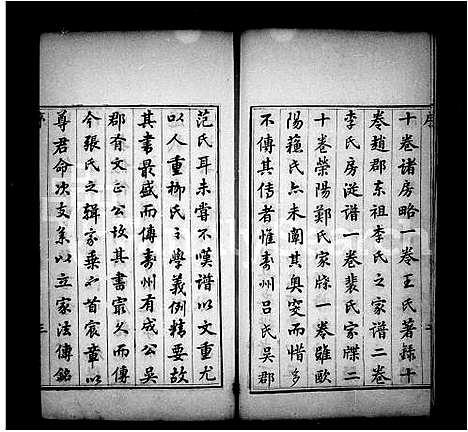 十卷諸房略一卷王氏著錄十
卷趙郡東祖李氏之家譜二卷
李氏房從譜一卷裴氏家牒二
十卷榮陽鄭氏家牒一卷雖歐
陽蘓氏亦未闖其奧窔而惜多
不傳其傳者惟壽州呂氏吳郡
范氏耳未嘗不嘆譜以文重尤
以人重柳氏之學義例精要故
其書最盛而傳壽州有成公吳
郡有文正公故其書最久而傳
今張氏之輯家乘之首宸章以
尊君命次支系以立家法傳銘
序
三